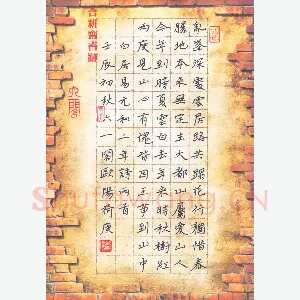 亂峯深處雲居路共蹋花行獨惜春
勝地本來無定主大都山屬愛山人
今年到時夏雲白去年來時秋樹紅
兩度見山心有愧皆因王事到山中
白居易元和二年詩兩首
壬辰初秋六一閣歐陽荷庚